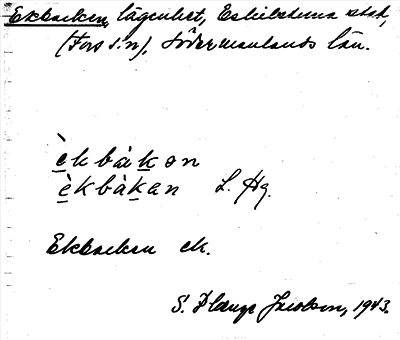 Ekbacken, lägenhet, Eskilstuna stad,
(Fors s:n), Södermanlands län.
èkbàkən
èkbàkan L. Hg.
Ekbacken ek.
S. Jacobson, 1943.